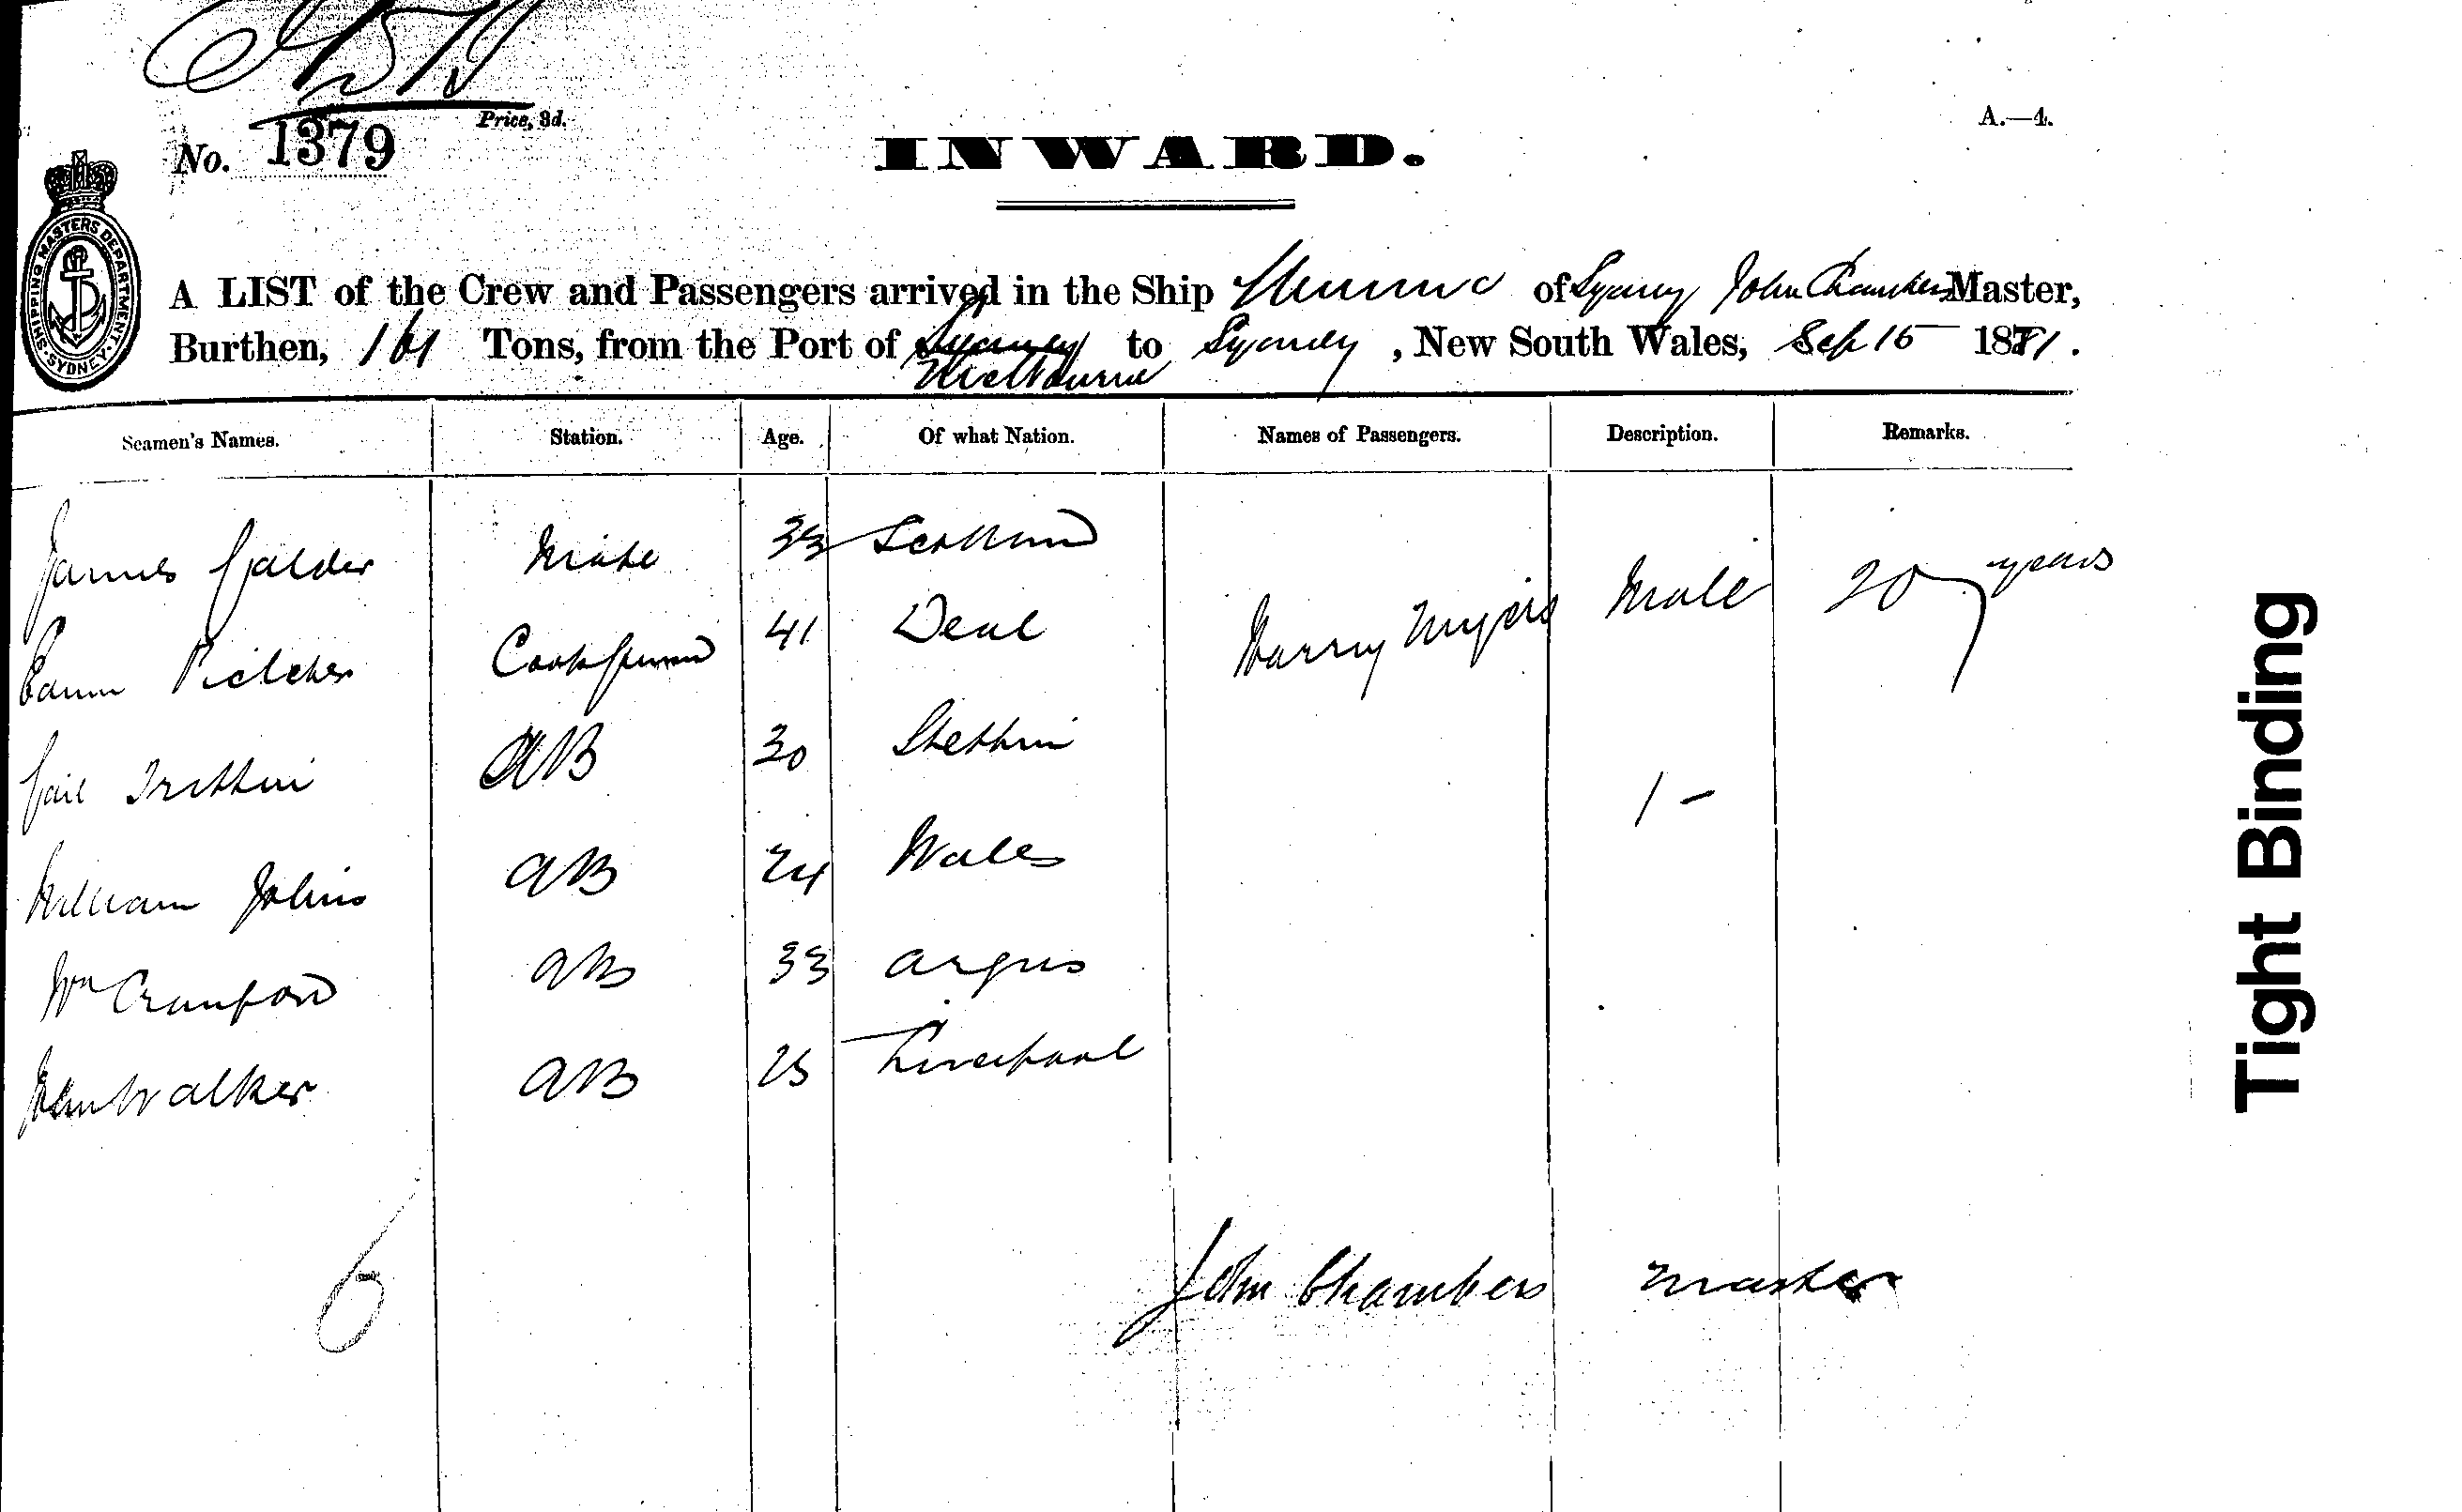 Price, 3d.
A.—4.
No. 1379
INWARD.
SHIPPING MASTERS DEPARTMENT. SYDNEY.
A LIST of the Crew and Passengers arrived in the Ship of Sydney John Chambers Master,
Burthen, 161 Tons, from the Port of Sydney Melbourne to Sydney, New South Wales, Sep 15 1881.
Seamen's Names. Station. Age. Of what Nation. Names of Passengers. Description. Remarks.
James Calder Mate 33 Scotland
Pilcher Cook 41 Deal Harry Myers Male 20 years
AB 30 Stettin
1 -
William Johns AB 24 Wales
Wm Crauford AB 33 Argus
John Walker AB 25 Liverpool
6
John Chambers Master
Tight Binding